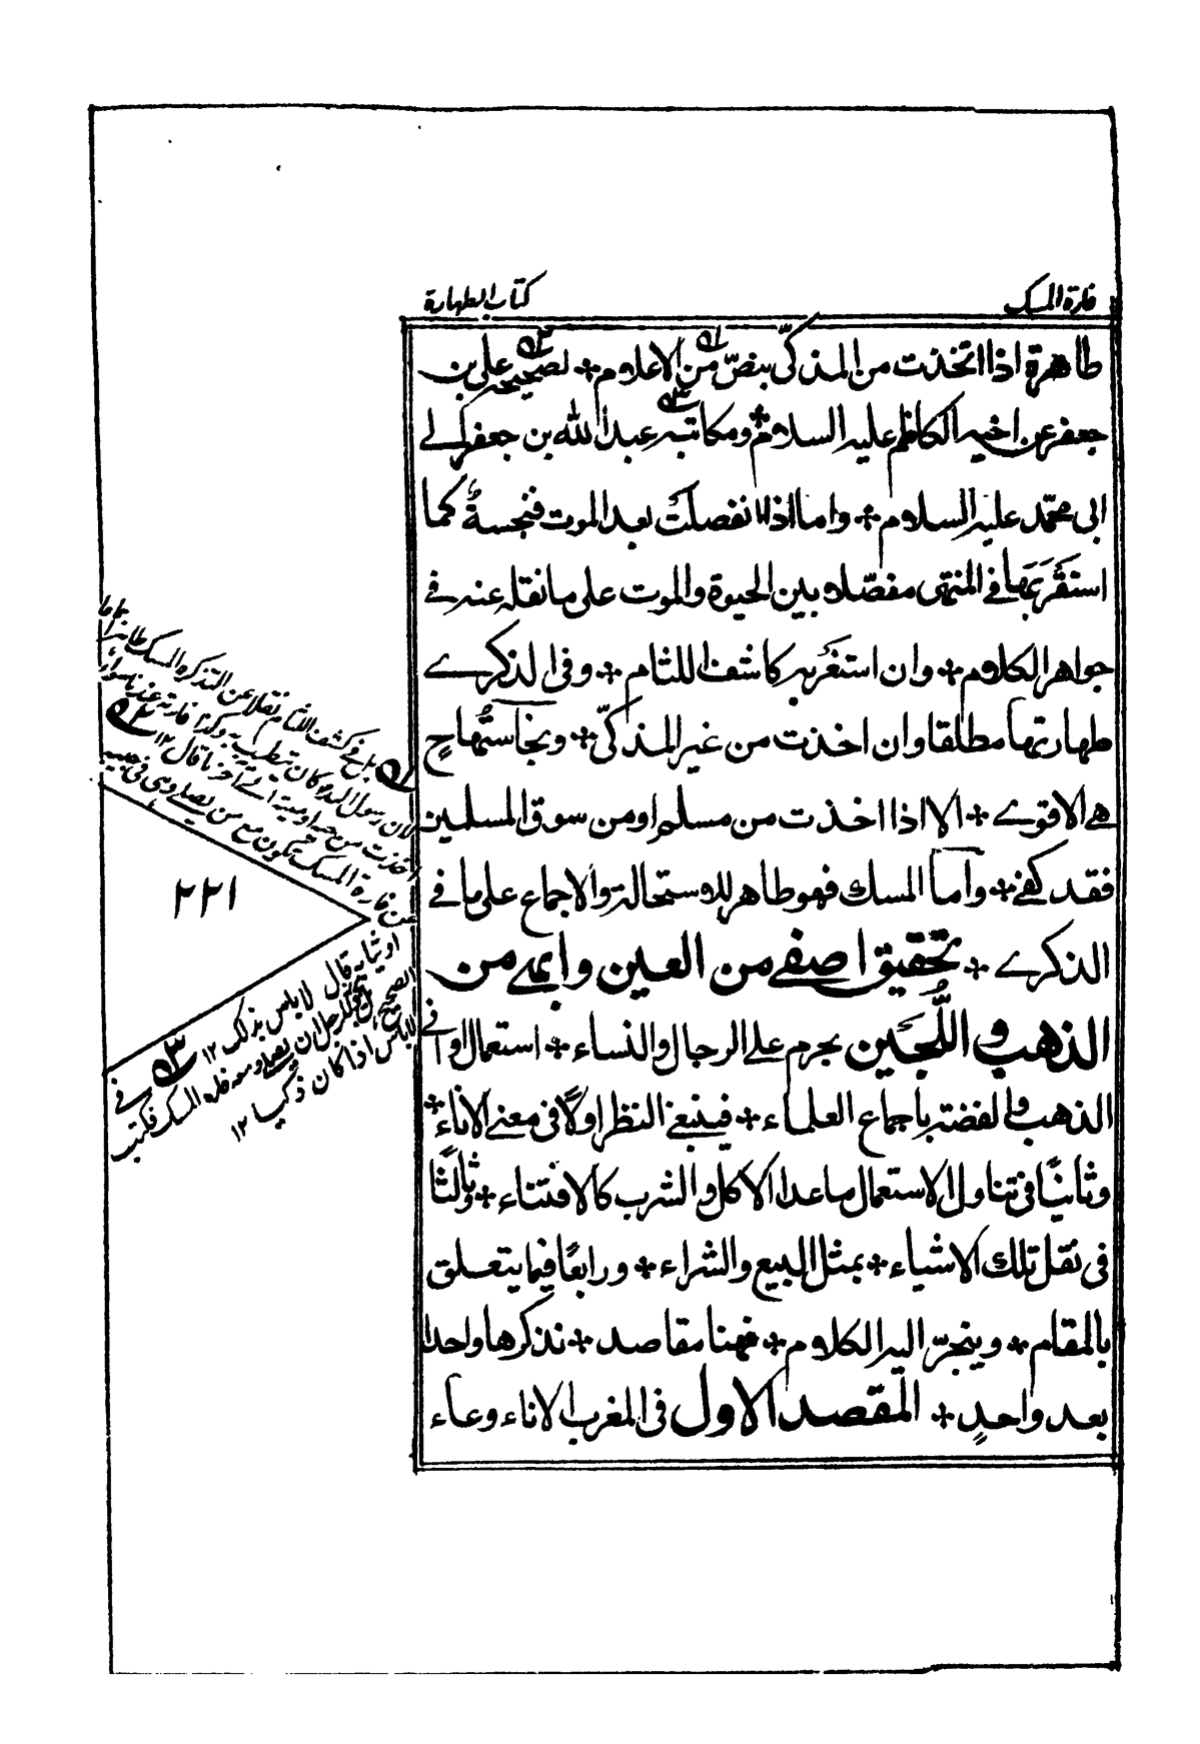 فارة المسك
كتاب الطهارة
طاهرة اذا اتخذت من المذكّى بنصّ من الاعلام ÷ لصحيحة علي بن
جعفر عن اخيه الكاظم عليه السلام ÷ ومكاتبة عبد الله بن جعفر الے
ابي محمّد عليه السلام ÷ واما اذا انفصلت بعد الموت فنجسةٌ كما
استقربها في المنتهى مفصّلا بين الحيوة والموت على ما نقله عنه في
جواهر الكلام ÷ وان استغربه كاشف اللثام ÷ وفي الذكرے
طهارتها مطلقا وان اخذت من غير المذكّى ÷ ونجاستُها حٍ
هي الاقوے ÷ الا اذا اخذت من مسلم او من سوق المسلمين
فقد كفے ÷ واما المسك فهو طاهر للاستحالة والاجماع على ما في
الذكرے ÷ تحقيق اصفے من العين وابهے من
الذهب و اللُّجَين يحرم على الرجال والنساء ÷ استعمال اوا في
الذهب والفضة باجماع العلماء ÷ فينبغي النظر اولًا في معنى الاناء ÷
وثانيًا في تناول الاستعمال ما عدا الاكل والشرب كالاقتناء ÷ وثالثًا
في نقل تلك الاشياء ÷ بمثل البيع والشراء ÷ ورابعًا فيما يتعلق
بالمقام ÷ وينجرّ اليه الكلام ÷ فهنا مقاصد ÷ نذكرها واحدا
بعد واحدٍ ÷ المقصد الاول في المغرب الاناء وعاء
ـه۱ بل في كشف اللثام نقلا عن التذكرة المسك طاهر اجماعا
لان رسول الله كان يتطيب به وكذا فارته عندنا سواء
اخذت من حية او ميتة الے آخر ما قال ۱۲ ـه۲
عن فارة المسك تكون مع من يصلي وهي في جيبه
۲۲۱
او ثيابه قال لا باس بذلك ۱۲ ـه۳ في
الصحيح يجوز للرجل ان يصلي ومعه فارة المسك فكتب
لا باس اذا كان ذكيا ۱۲